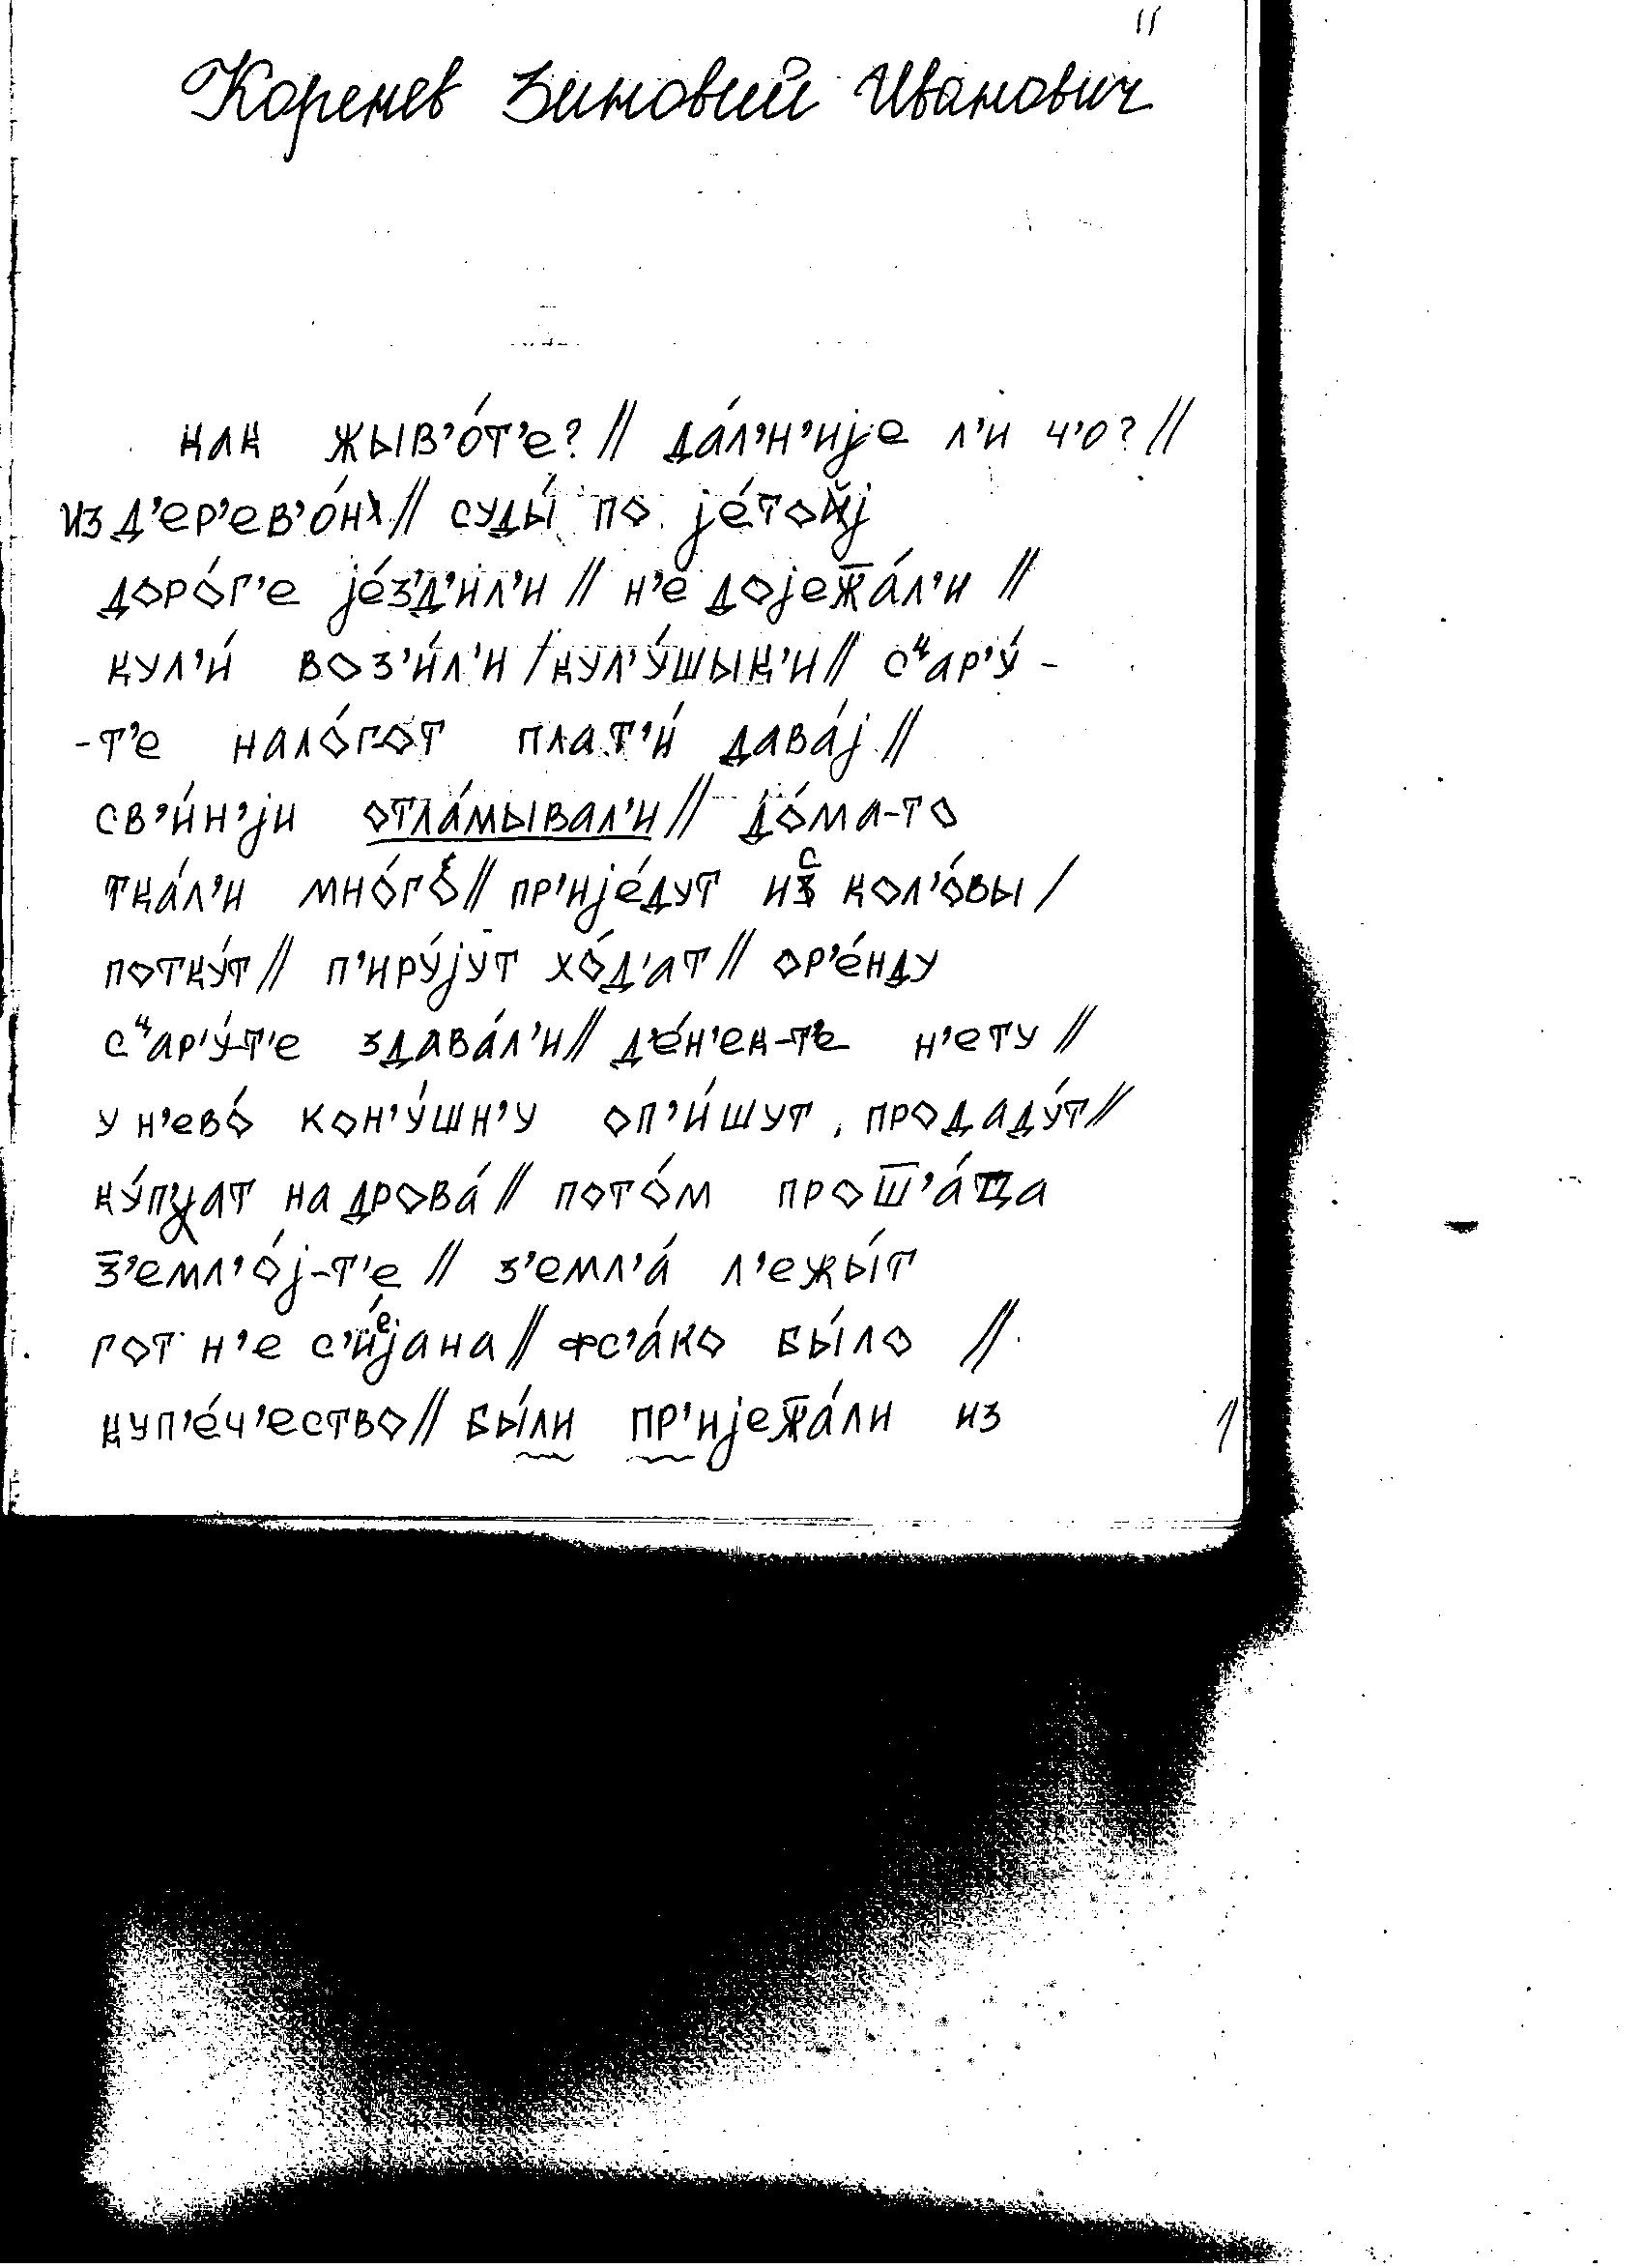 11
Коренев Зиновий Иванович
как жыв'о́т'е? // да́л'н'иjе л'и ч'о? //
из д'ер'ев'о́н // суды́ по jе́тоj
доро́г'е jе́з'д'ил'и // н'е доjеж̅а́л'и //
кул'и́ воз'и́л'и / кул'у́шык'и // сᶣар'у́ -
-т'е нало́гот плат'и́ дава́j //
св'и́н'jи отла́мывал'и // до́ма-то
тка́л'и мно́го // пр'иjе́дут ис кол'о́вы /
потку́т // п'иру́jут хо́д'ат // ор'е́нду
сᶣар'у́т'е здава́л'и // д'е́н'ек-те н'ету //
у н'ево́ кон'у́шн'у оп'и́шут, продаду́т //
ку́пјат на дрова́ // пото́м прош̅'а́ца
з̅'емл'о́j-т'е // з'емл'а́ л'ежы́т
гот н'е с'е́jана // фс'а́ко бы́ло //
куп'е́ч'ество // бы́ли пр'иjеж̅а́ли из
1